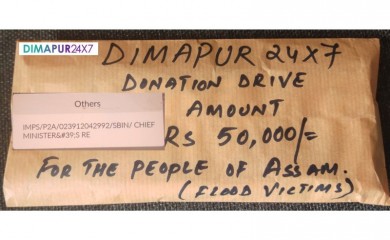 DIMAPUR24X7
DIMAPUR 24X7
DONATION DRIVE
AMOUNT
RS 50,000/=
FOR THE PEOPLE OF ASSAM.
(FLOOD VICTIMS)
Others
IMPS/P2A/023912042992/SBIN/ CHIEF
MINISTER&#39;S RE